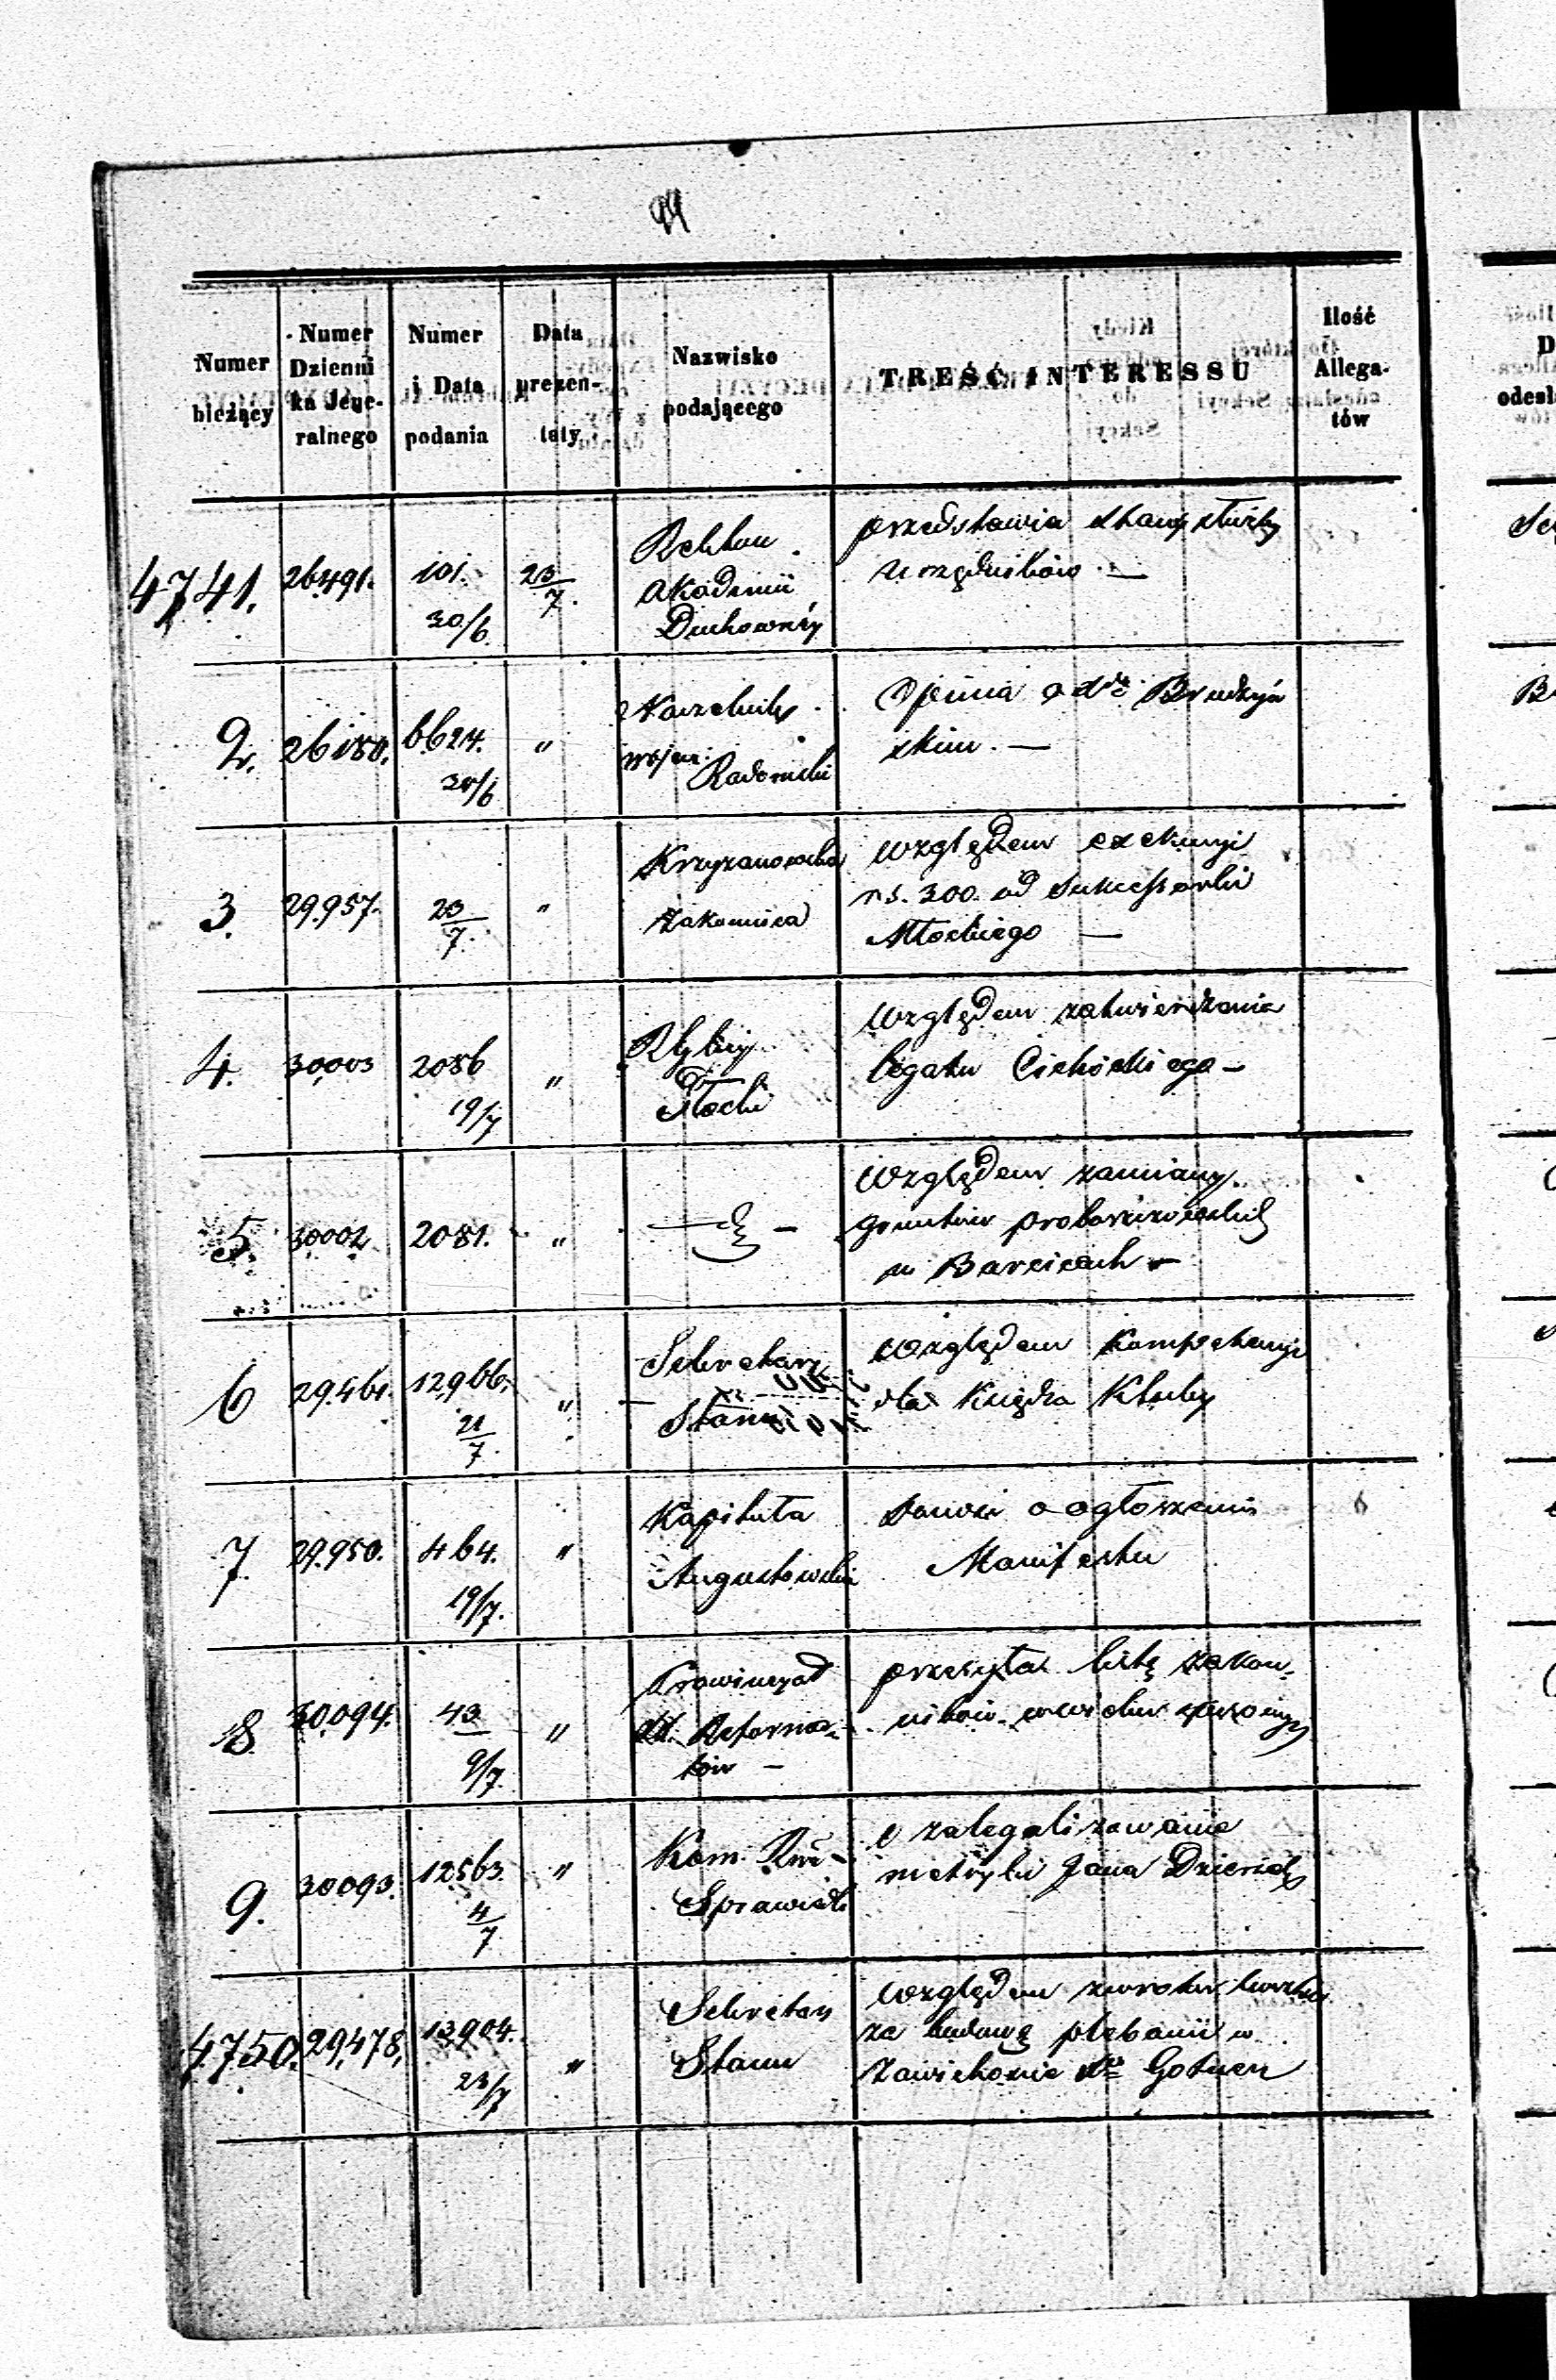 94
Numer bieżący | Numer Dziennika Jeneralnego | Numer i Data podania | Data prezentaty | Nazwisko podającego | TREŚĆ INTERESSU | Ilość Allegatów
4741. | 26491. | 101. 30/6. | 23/7. | Rektor Akademii Duchownéj | przedstawia stany służby urzędników. —
2. | 26180. | 6624. 30/6 | " | Naczelnik wojen: Radomski | Opinia o
3. | 29957. | 23/7. | " | Krzyzanowska zakonnica | względem exekucyi rs. 300. od Sukcessorki Młockiego —
4. | 30003 | 2086 19/7 | " | Płocki | względem zatwierdzenia legatu Cichockiego —
5. | 30002 | 2081. | " | — — | względem zamiany gruntów proboszczowskich w Barcicach —
6 | 29461. | 12966. 21/7. | " | Sekretarz Stanu | względem kompetencyi dla Księdza Kluby
7. | 29.950. | 464. 19/7. | " | Kapituła Augustowska | donosi o ogłoszeniu Manifestu
8. | 30,094. | 43 9/7 | " | Prowincyał XX. Reformatów — | przesyła listę zakonników
9. | 30093. | 12563. 4/7 | " | Kom. Sprawied | o zalegalizowanie metryki Jana
4750. | 29,478, | 13,904. 23/7 | " | Sekretarz Stanu | względem zwrotu kosztów za budowę plebanii w Zawichoście